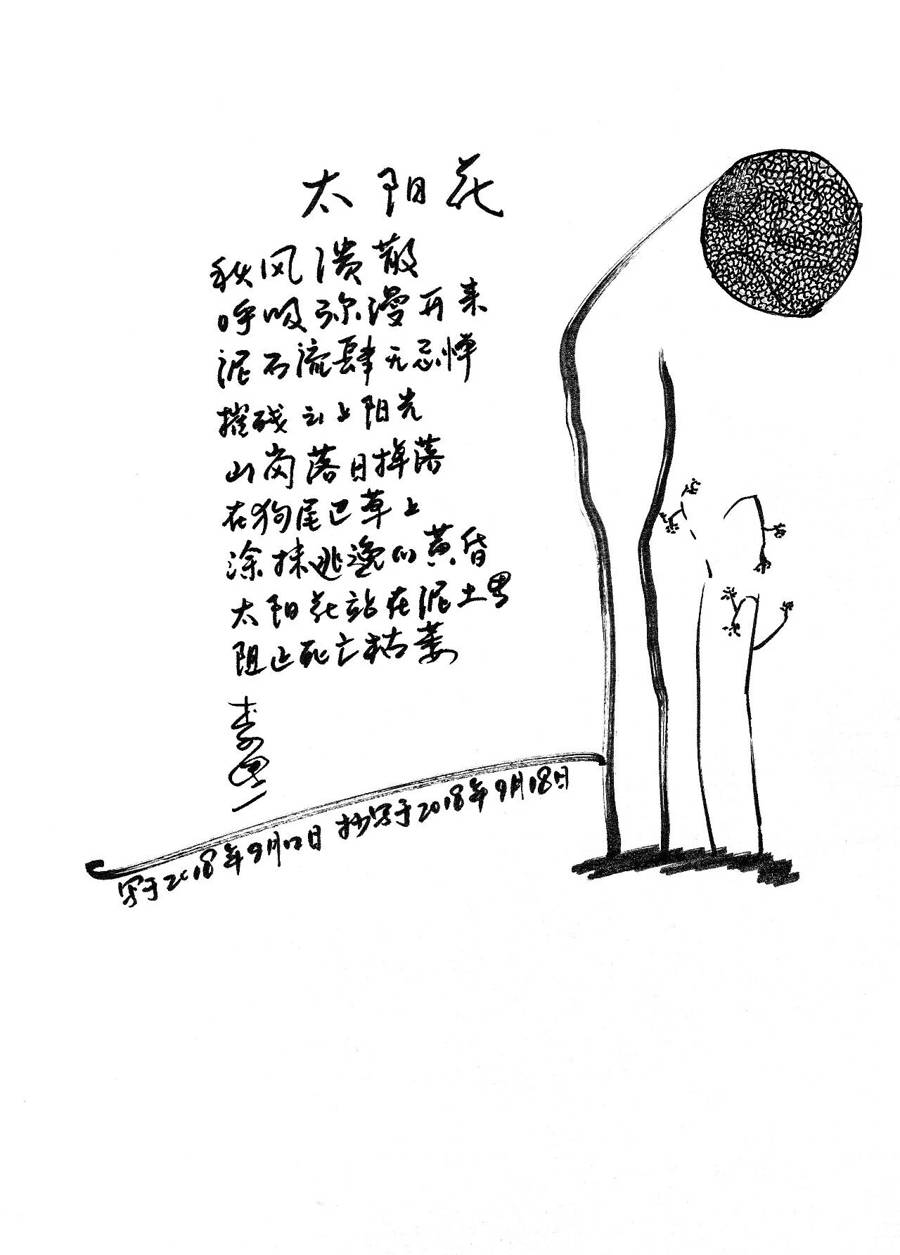 太阳花
秋风溃散
呼吸弥漫开来
泥石流肆无忌惮
摧残云上阳光
山岗落日掉落
在狗尾巴草上
涂抹逃逸的黄昏
太阳花站在泥土里
阻止死亡枯萎
李
写于2018年9月12日 抄写于2018年9月18日